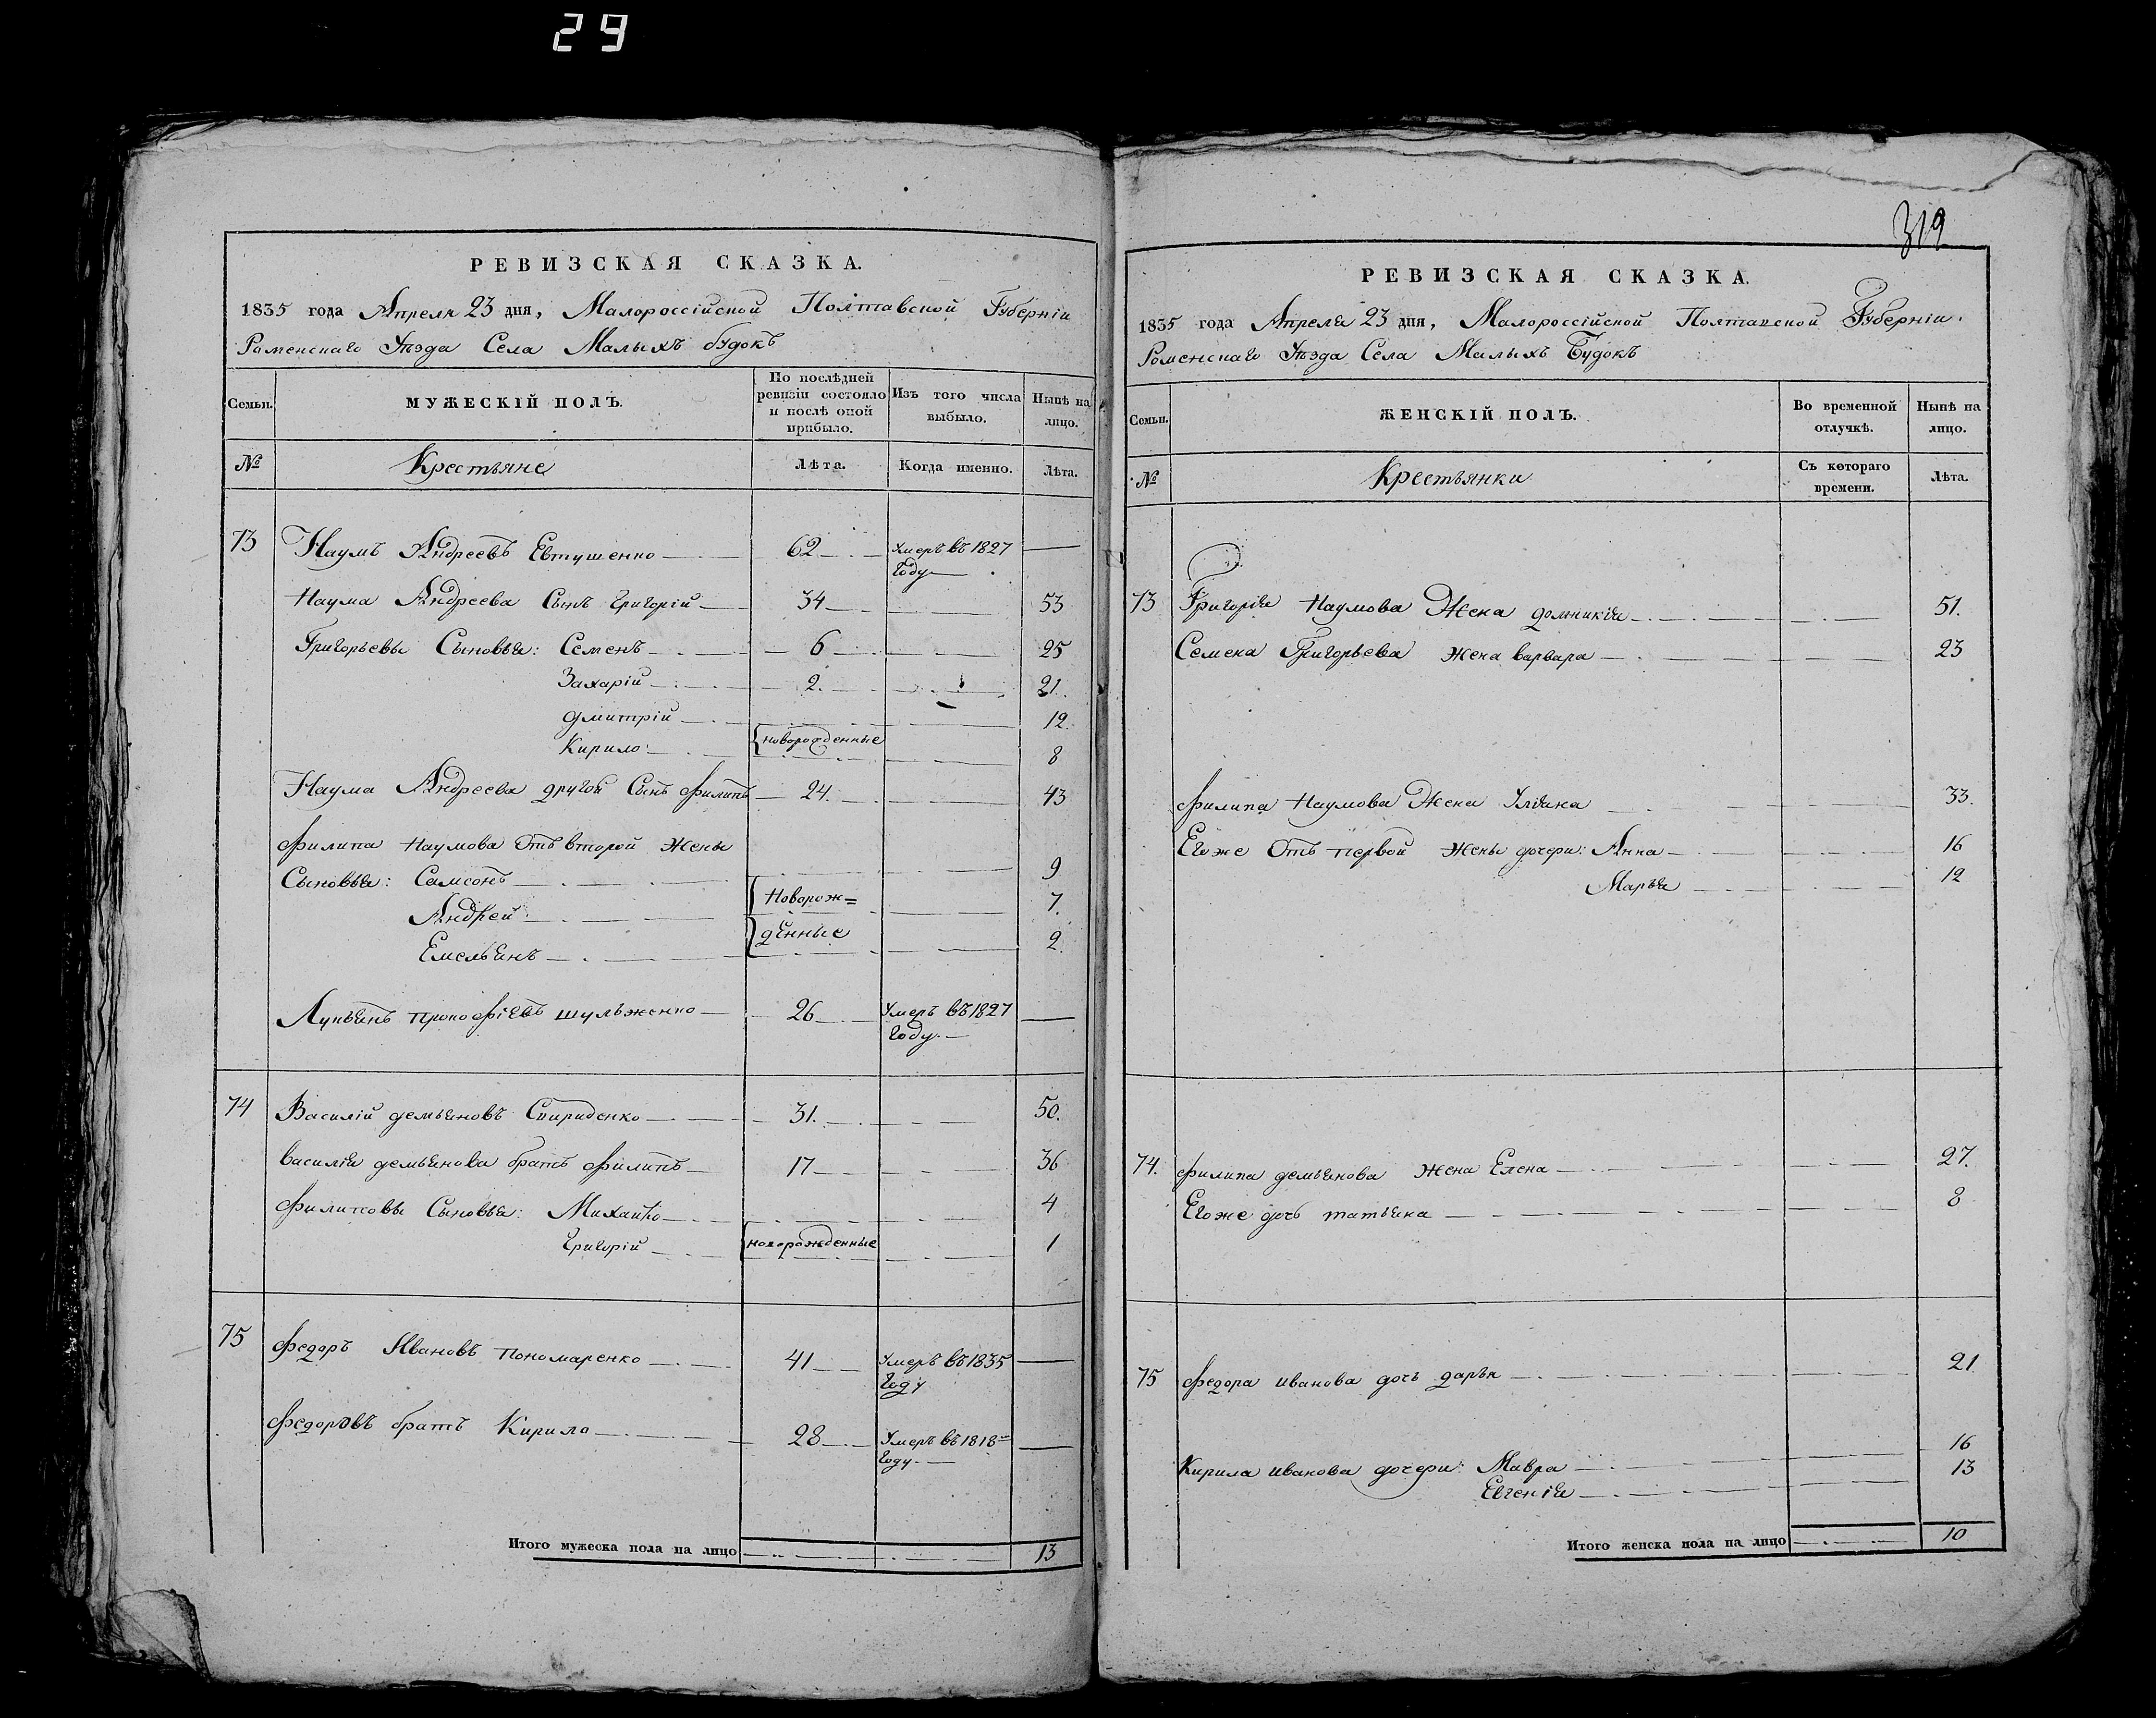 29
РЕВИЗСКАЯ СКАЗКА.
1835 года Апреля 23 дня, Малороссійской Полтавской Губерніи
Роменскаго Уѣзда Села Малыхъ будокъ
Семьи.
МУЖЕСКІЙ ПОЛЪ.
По послѣдней ревизіи состояло и послѣ оной прибыло.
Изъ того числа выбыло.
Нынѣ на лицо.
№
Крестьяне
Лѣта.
Когда именно.
Лѣта.
73 Наумъ Андреевъ Евтушенко 62 умеръ въ 1827
году
Наума Андреева Сынъ григорій 34 53
Григорьевы Сыновья: Семенъ 6 25
Захарій 2. 21.
дмитрій 12.
Кирило новорожденные 8
Наума Андреева другой Сынъ филипъ 24. 43
филипа Наумова Отъ второй Жены
Сыновья: Самсонъ 9
Андрей Новорож= 7.
Емельянъ денные 2.
Лукьянъ прокофіевъ шульженко 26 Умеръ въ 1827
году.
74 Василій демьяновъ Спириденко 31. 50.
василія демьянова братъ филипъ 17 36
филиповы Сыновья: Михайло 4
григорій новорожденные 1
75 федоръ Ивановъ пономаренко 41 Умеръ въ 1835
году
федоровъ братъ Кирило 28 Умеръ въ 1818
году.
Итого мужеска пола на лицо 13
319
РЕВИЗСКАЯ СКАЗКА.
1835 года Апреля 23 дня, Малороссійской Полтавской Губерніи.
Роменскаго Уѣзда Села Малыхъ Будокъ
Семьи.
ЖЕНСКІЙ ПОЛЪ.
Во временной отлучкѣ.
Нынѣ на лицо.
№
Крестьянки
Съ котораго времени.
Лѣта.
73 Григорія Наумова Жена домникія 51.
Семена Григорьева жена варвара 23
филипа Наумова Жена Уліяна 33.
Егоже Отъ первой жены дочери: Анна 16
Марья 12
74. филипа демьянова жена Елена 27.
Егоже дочь татьяна 8
75 федора иванова дочь дарья 21.
Кирила иванова дочери: Мавра 16
Евгенія 13
Итого женска пола на лицо 10